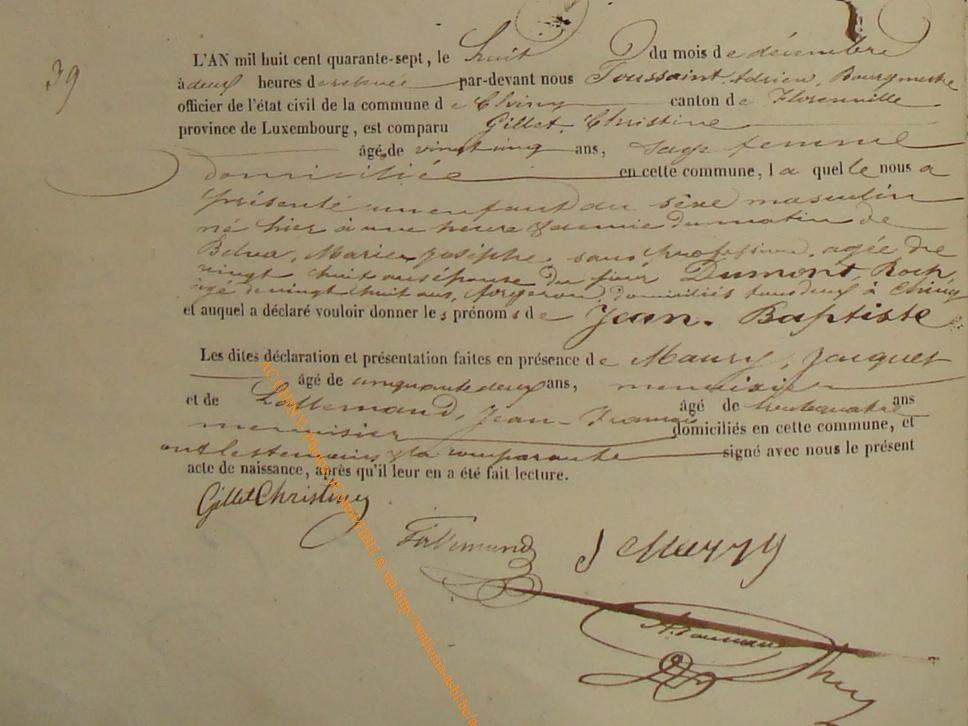 39
L'AN mil huit cent quarante-sept, le huit du mois de décembre
à deux heures de relevée par-devant nous Toussaint, Adrien, Bourgmestre
officier de l'état civil de la commune de Chiny canton de Florenville
province de Luxembourg, est comparu Gillet, Christine
âgé de vingt cinq ans, sage femme
domiciliée en cette commune, la quelle nous a
présenté un enfant du sèxe masculin
né hier à une heure & demie du matin de
Belva, Marie Josèphe, sans profession, agée de
vingt huit ans épouse du sieur Dumont, Roch
agé de vingt huit ans, forgeron, domiciliés tous deux à Chiny
et auquel a déclaré vouloir donner les prénoms de Jean-Baptiste
Les dites déclaration et présentation faites en présence de Maury, Jacques
âgé de cinquante deux ans, menuisier
et de Lallemand, Jean-François âgé de trente quatre ans
menuisier domiciliés en cette commune, et
ont les témoins & la comparante signé avec nous le présent
acte de naissance, après qu'il leur en a été fait lecture.
Gillet Christine
Lallemand J Maury